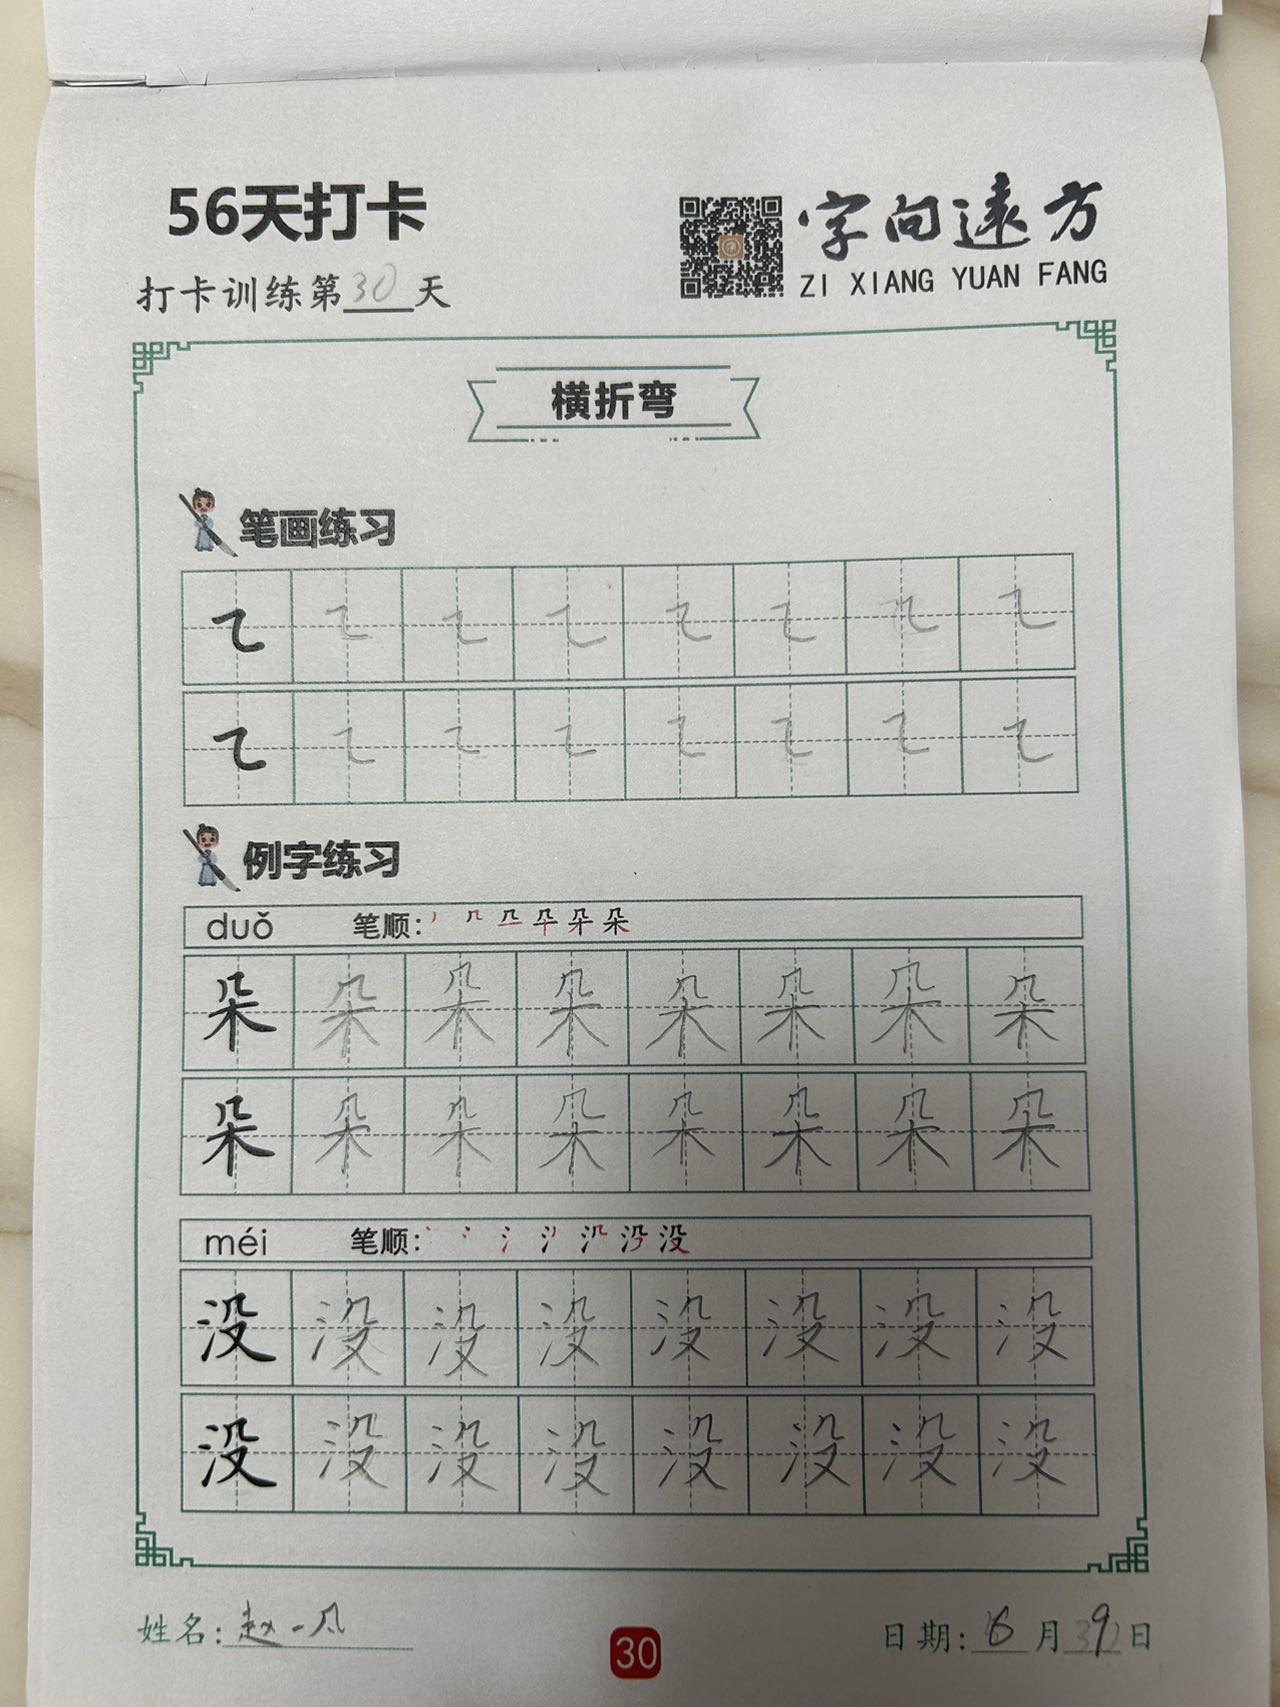 56天打卡
字向遠方
ZI XIANG YUAN FANG
打卡训练第30天
横折弯
笔画练习
㇍㇍㇍㇍㇍㇍㇍㇍
㇍㇍㇍㇍㇍㇍㇍㇍
例字练习
duǒ 笔顺:
朵朵朵朵朵朵朵朵
朵朵朵朵朵朵朵朵
méi 笔顺:
没没没没没没没没
没没没没没没没没
姓名:赵一
30
日期: 月 日